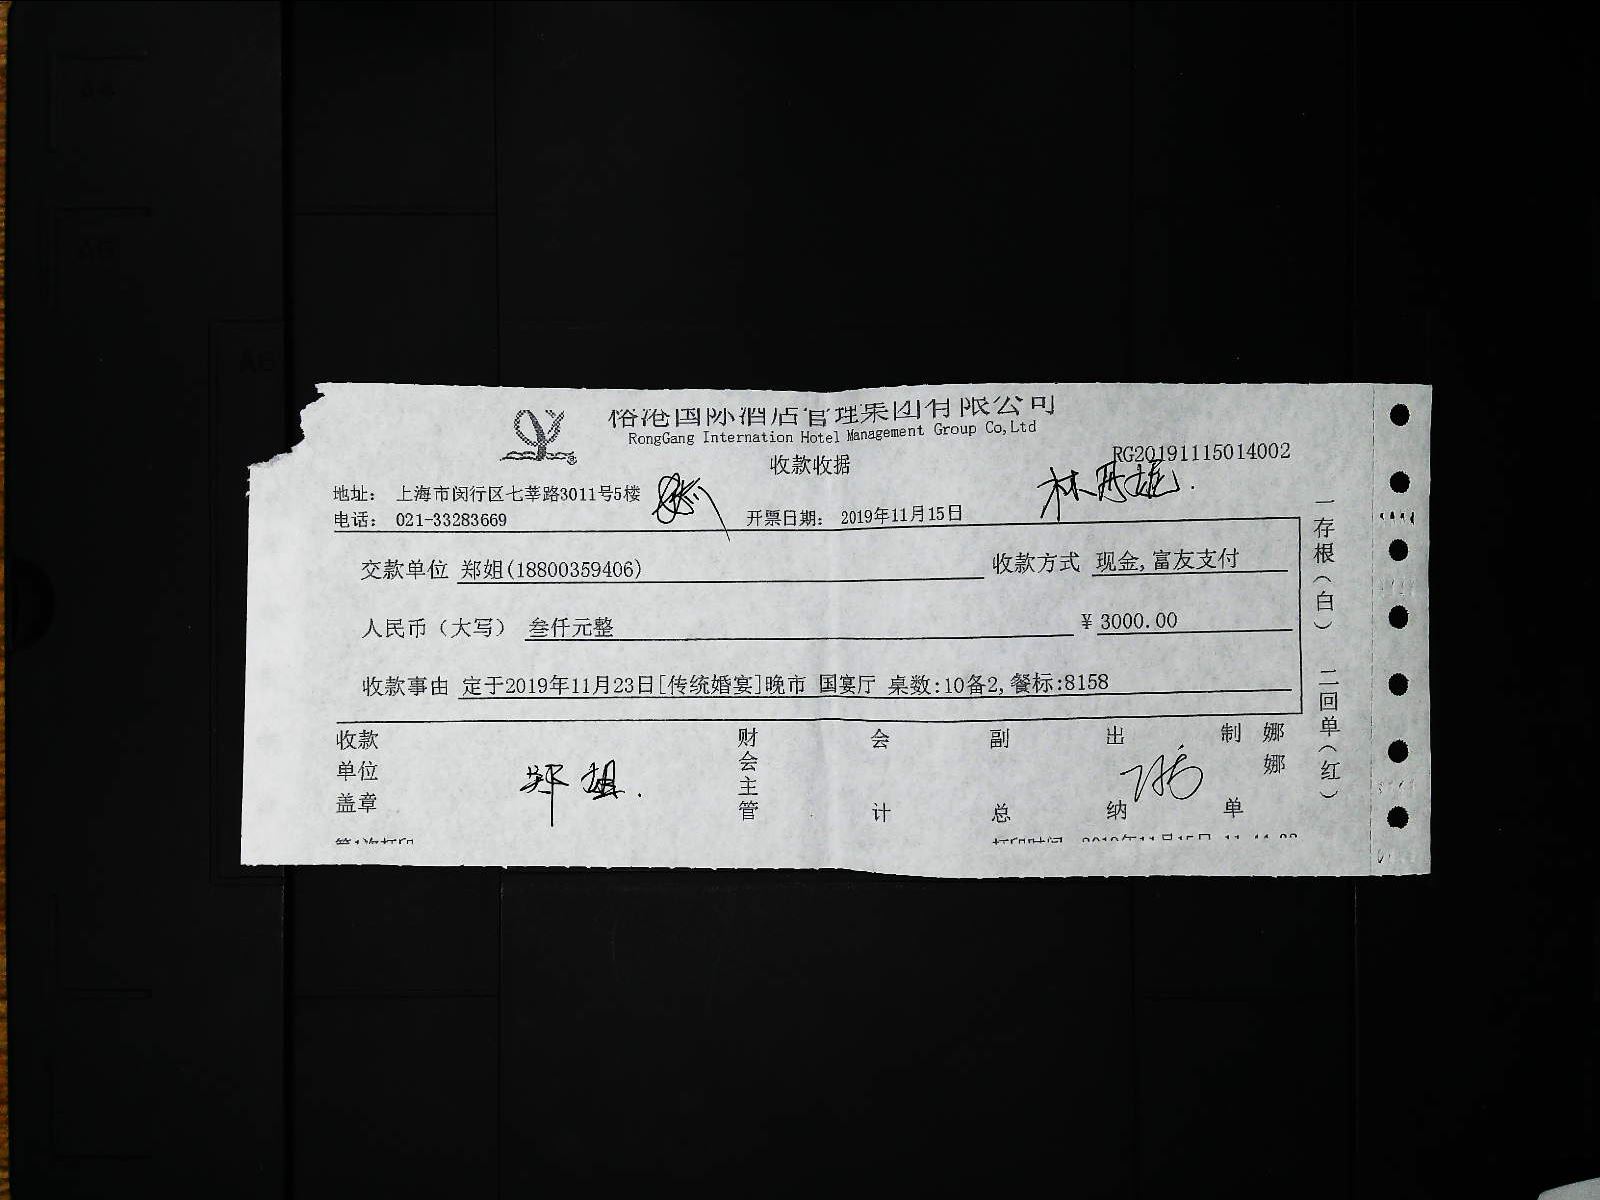 国际酒店管理集团有限公司
RongGang Internation Hotel Management Group Co,Ltd
收款收据
RG20191115014002
地址： 上海市闵行区七莘路3011号5楼
电话： 021-33283669
开票日期： 2019年11月15日
交款单位 郑姐(18800359406)
收款方式 现金,富友支付
人民币（大写） 叁仟元整
¥ 3000.00
收款事由 定于2019年11月23日[传统婚宴]晚市 国宴厅 桌数:10备2,餐标:8158
收款单位盖章
郑姐.
财会主管
会计
副总
出纳
制单
娜娜
一存根（白） 二回单（红）